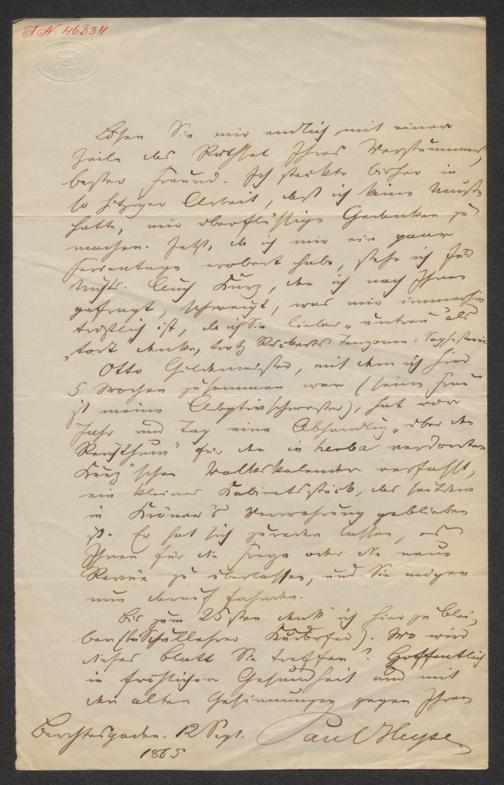 I.N. 46834
Lösen Sie mir endlich mit einer
Zeile das Räthsel Ihres Verstummens,
bester Freund. Ich steckte bisher in
so hitziger Arbeit, daß ich keine Muße
hatte, mir überflüssige Gedanken zu
machen. Jetzt, da ich mir ein paar
Ferientage erobert habe, stehe ich
Nichts. Auch Kurz, den ich nach Ihnen
gefragt, schweigt, was mir immerhin
tröstlich ist, da ich Sie lieber „untreu" als
„todt" denke, trotz
Otto Gildemeister, mit dem ich hier
5 Wochen zusammen war (seine Frau
ist meine Adoptivschwester), hat vor
Jahr und Tag eine Abhandlung „über den
Reichthum" für den in herba verdorrten
Kurz'schen Volkskalender verfaßt,
ein kleines Kabinetsstück, das seitdem
in Kröner's Verwahrung geblieben
ist. Er hat sich zureden lassen, es
Ihnen für die Freya oder die neue
Revue zu überlassen, und Sie mögen
nun darauf fahnden.
Bis zum 25sten denk' ich hier zu blei-
ben (bei Schullehrer). Wo wird
dieses Blatt Sie treffen? Hoffentlich
in fröhlicher Gesundheit und mit
den alten Gesinnungen gegen Ihren
Berchtesgaden. 12 Sept. Paul Heyse
1865